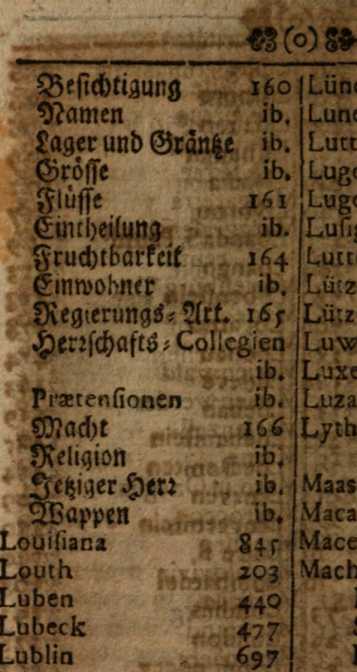 (o)
Besichtigung 160
Namen ib.
Lager und Gräntze ib.
Grösse ib.
Flüsse 161
Eintheilung ib.
Fruchtbarkeit 164
Einwohner ib.
Regierungs-Art. 165
Herrschafts-Collegien
ib.
Prætensionen ib.
Macht 166
Religion ib.
Jetziger Herr ib.
Wappen ib.
Louisiana 845
Louth 203
Luben 440
Lubeck 477
Lublin 697
Lün
Lun
Lutt
Lug
Lug
Lusi
Lutt
Lütz
Lütz
Luw
Luxe
Luza
Lyth
Maas
Maca
Mace
Mach